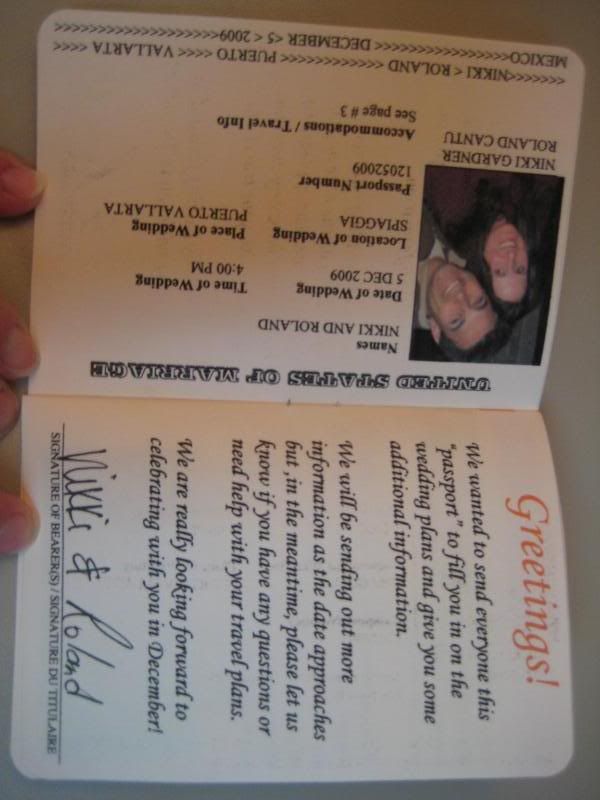 Greetings!
We wanted to send everyone this
"passport" to fill you in on the
wedding plans and give you some
additional information.
We will be sending out more
information as the date approaches
but ,in the meantime, please let us
know if you have any questions or
need help with your travel plans.
We are really looking forward to
celebrating with you in December!
Nikki & Roland
SIGNATURE OF BEARER(S) / SIGNATURE DU TITULAIRE
UNITED STATES OF MARRIAGE
Names
NIKKI AND ROLAND
Date of Wedding Time of Wedding
5 DEC 2009 4:00 PM
Location of Wedding Place of Wedding
SPIAGGIA PUERTO VALLARTA
Passport Number
12052009
Accommodations / Travel Info
See page # 3
NIKKI GARDNER
ROLAND CANTU
<<<<<<<NIKKI < ROLAND <<<<<<<<<<<<< PUERTO <<<< VALLARTA <<<<<
MEXICO<<<<<<<<<<<<<<<<< DECEMBER <5 < 2009<<<<<<<<<<<<<<<<<<<